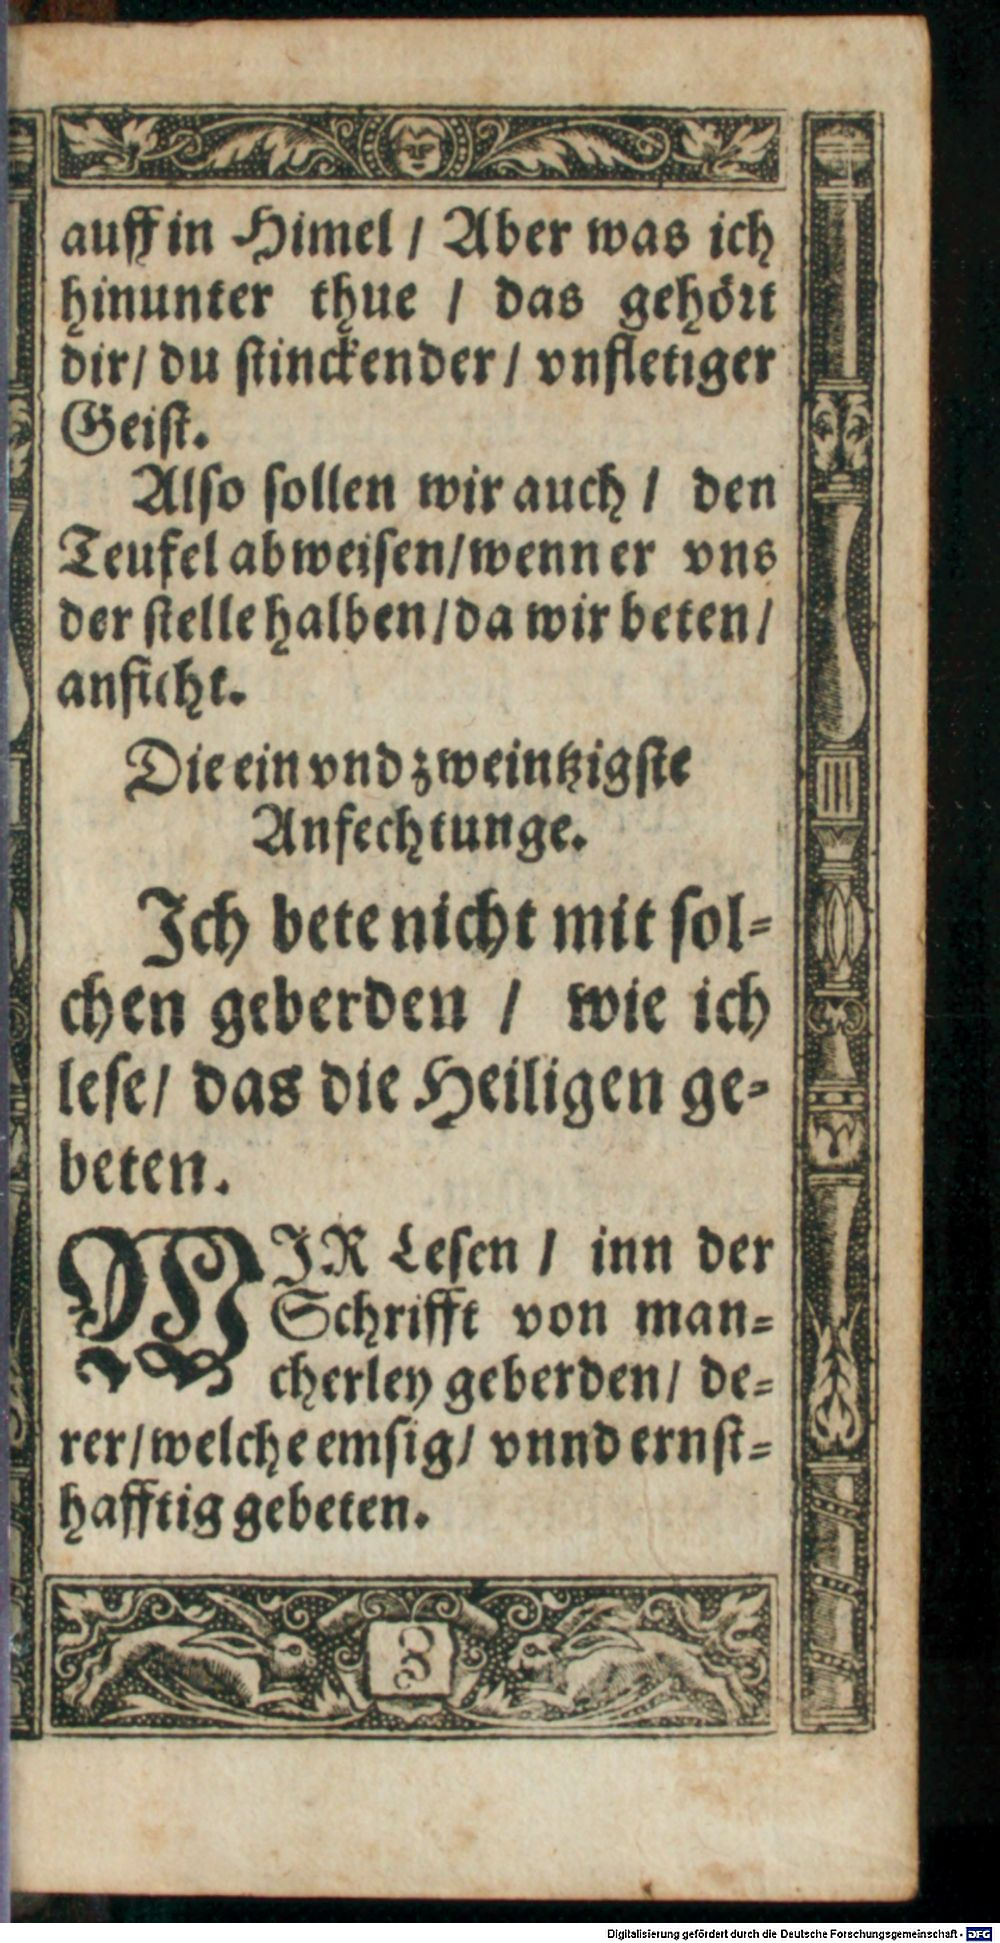 auff in Himel / Aber was ich
hinunter thue / das gehört
dir / du stinckender / vnfletiger
Geist.
Also sollen wir auch / den
Teufel abweisen / wenn er vns
der stelle halben / da wir beten /
anficht.
Die ein vnd zweintzigste
Anfechtunge.
Ich bete nicht mit sol=
chen geberden / wie ich
lese / das die Heiligen ge=
beten.
WIR Lesen / inn der
Schrifft von man=
cherley geberden / de=
rer / welche emsig / vnnd ernst=
hafftig gebeten.
Digitalisierung gefördert durch die Deutsche Forschungsgemeinschaft - DFG